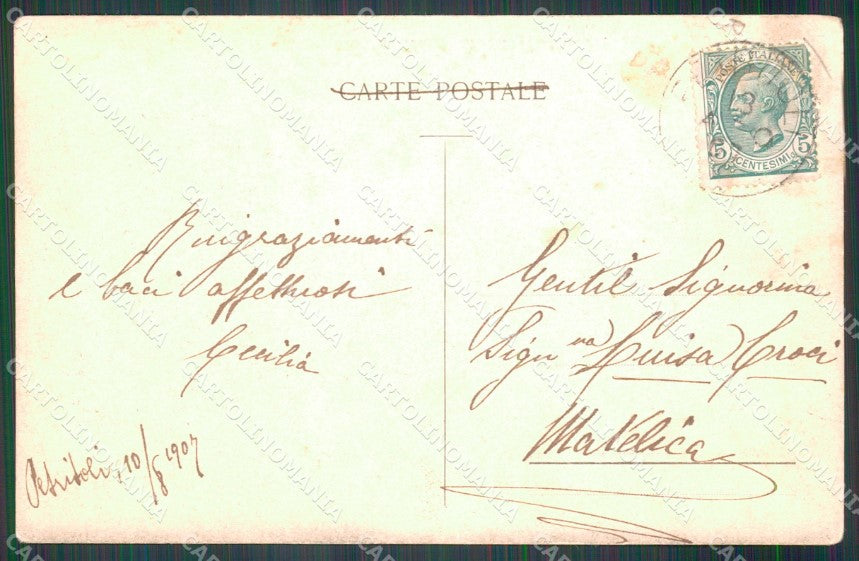 CARTE POSTALE
POSTE ITALIANE
5 CENTESINI 5
Ringraziamenti
e baci affettuosi
Cecilia
Petritoli, 10/8 1907
Gentil Signorina
Sign.na Luisa Croci
Matelica
CARTOLINOMANIA